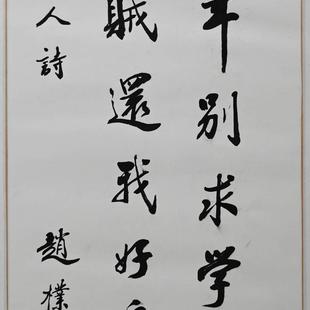 别求学
賊還我好
人詩 趙樸